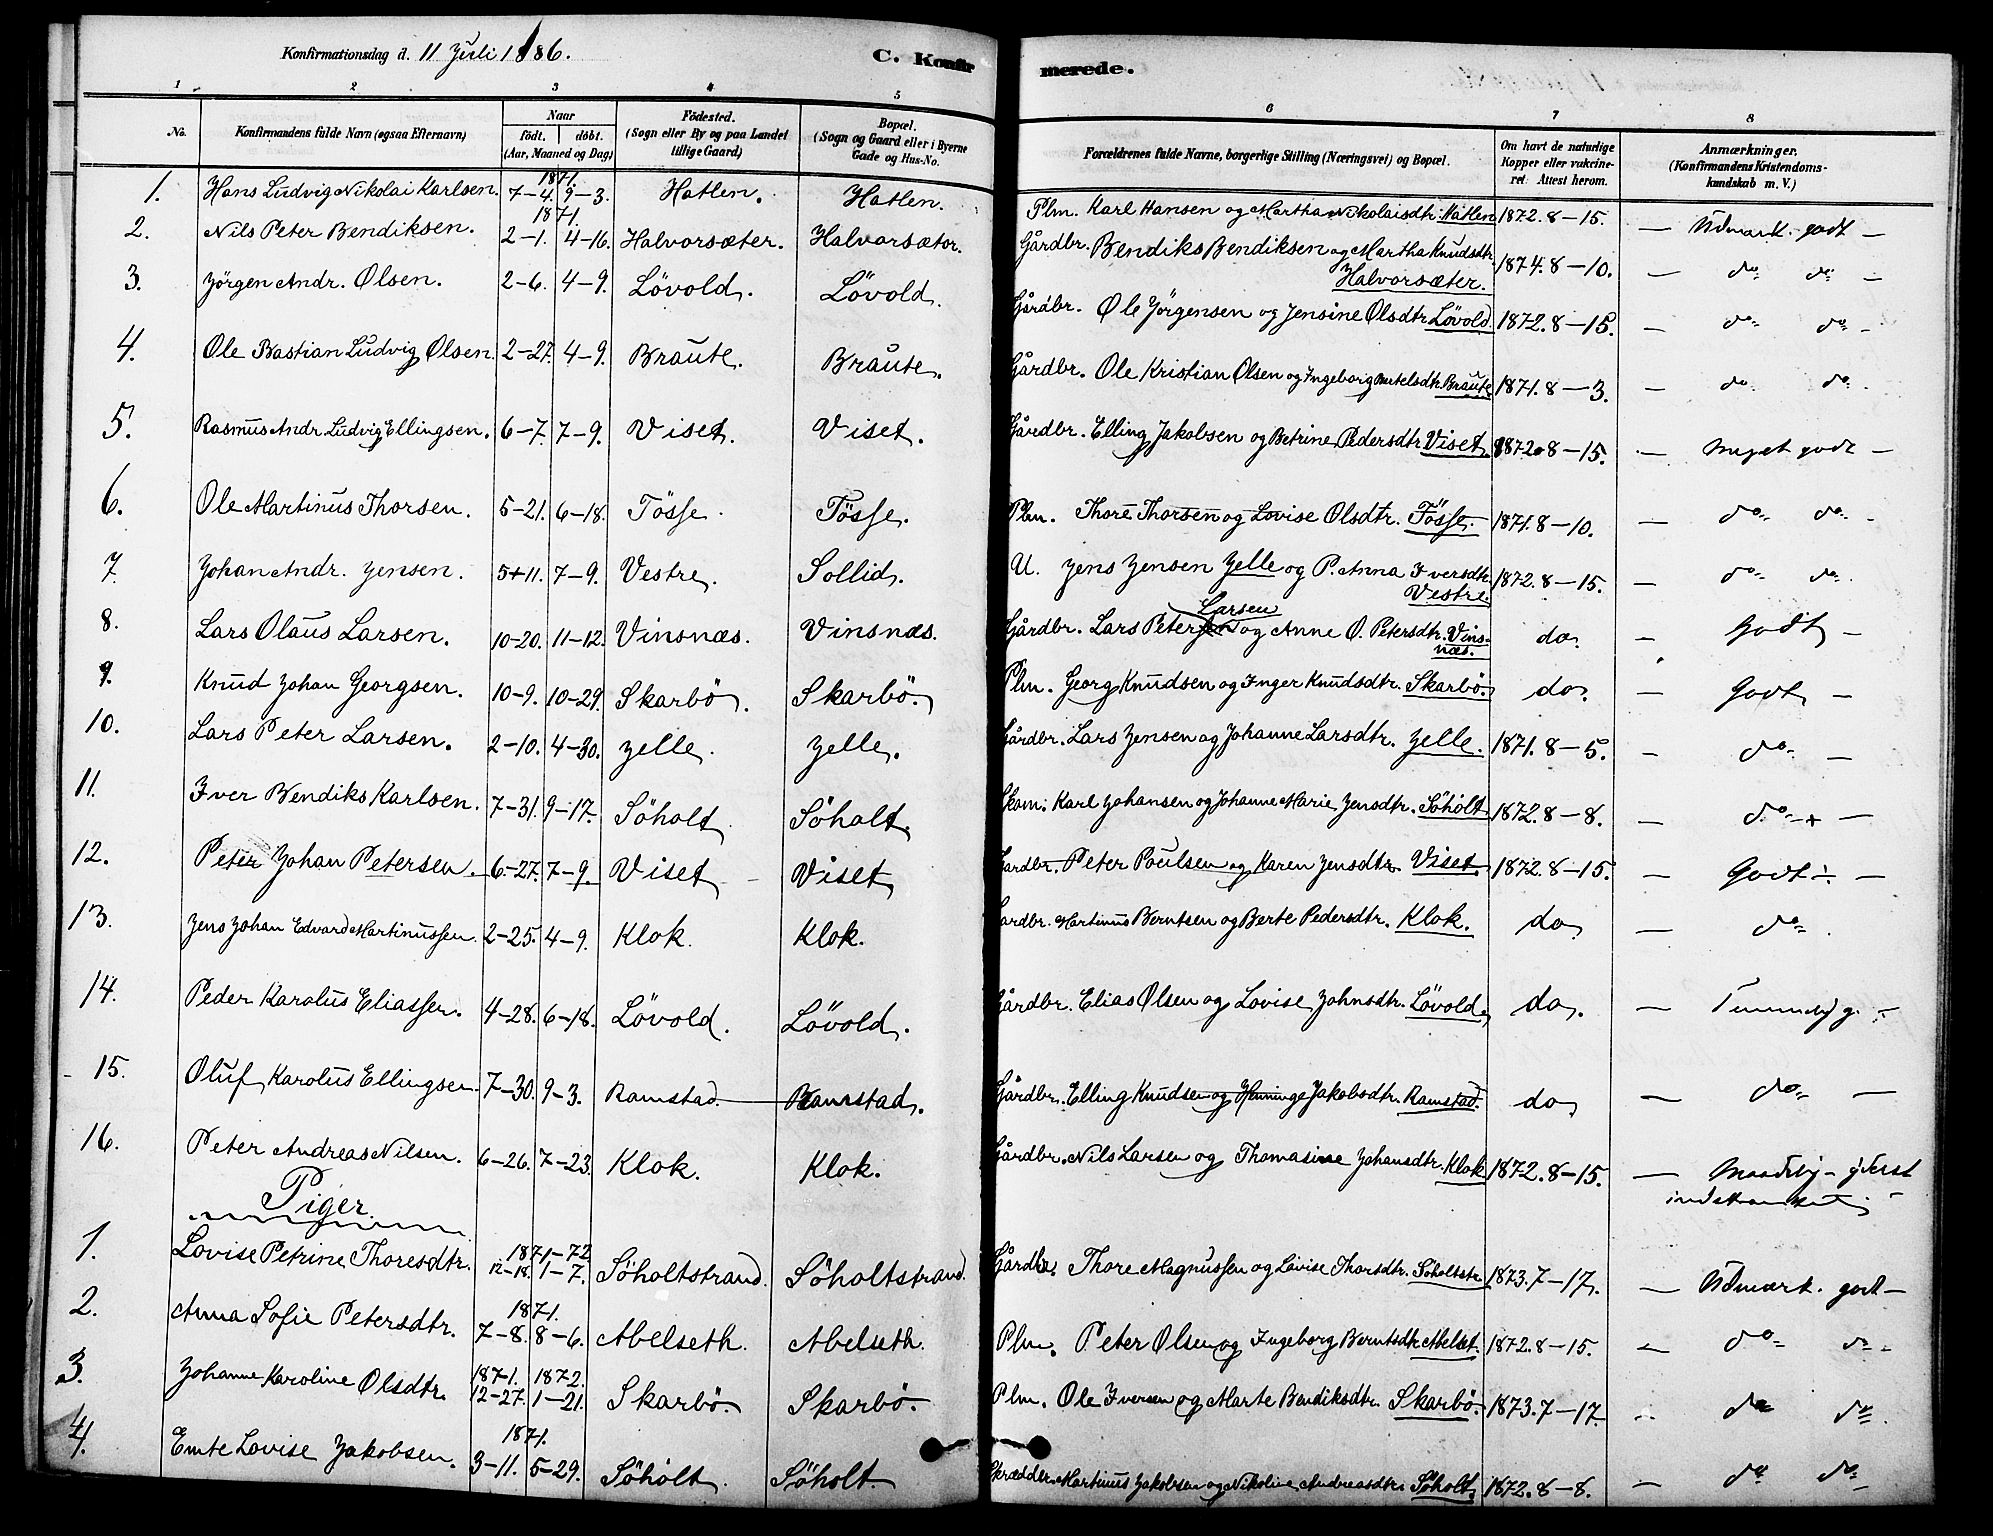 Konfirmationsdag d. 11 Juli 1886.
C. Konfirmerede.
1 2 3 4 5 6 7 8
No. Konfirmandens fulde Navn (ogsaa Efternavn) Naar født. døbt. (Aar, Maaned og Dag) Födested. (Sogn eller By og paa Landet tillige Gaard) Bopæl. (Sogn og Gaard eller i Byerne Gade og Hus-No. Forældrenes fulde Navne, borgerlige Stilling (Næringsvei) og Bopæl. Om havt de naturlige Kopper eller vakcineret: Attest herom. Anmærkninger. (Konfirmandens Kristendomskundskab m. V.)
1. Hans Ludvig Nikolai Karlsen. 1871. 7-4. 9-3. Hatlen. Hatlen. Plm. Karl Hansen og Martha Nikolaisdtr. Hatlen 1872. 8-15. — Udmærk. godt —
2. Nils Peter Bendiksen. 1871. 2-1. 4-16. Halvorsæter. Halvorsæter. Gårdbr. Bendiks Bendiksen og Martha Knudsdtr. Halvorsæter. 1874. 8-10. — do do —
3. Jörgen Andr. Olsen. 2-6. 4-9. Lövold. Lövold. Gårdbr. Ole Jörgensen og Jensine Olsdtr Lövold. 1872. 8-15. — do do —
4. Ole Bastian Ludvig Olsen. 2-27. 4-9. Braute. Braute. Gårdbr. Ole Kristian Olsen og Ingeborg Bertelsdtr. Braute 1871. 8-3. — do do
5. Rasmus Andr. Ludvig Ellingsen. 6-7. 7-9. Viset. Viset. Gårdbr. Elling Jakobsen og Petrine Pedersdtr Viset. 1872. 8-15. — meget godt —
6. Ole Martinus Thorsen. 5-21. 6-18. Tösse. Tösse. Plm. Thore Thorsen og Lovise Olsdtr. Tösse. 1871. 8-10. — do do —
7. Johan Andr. Jensen. 5-11. 7-9. Vestre. Sollid. U. Jens Jensen Jelle og P. Anna Iversdtr. Vestre. 1872. 8-15. — do do
8. Lars Olaus Larsen. 10-20. 11-12. Vinsnæs. Vinsnæs. Gårdbr. Lars Petersen Larsen og Anne O. Petersdtr. Vinsnæs. do. — Godt —
9. Knud Johan Georgsen. 10-9. 10-29. Skarbö. Skarbö. Plm. Georg Knudsen og Inger Knudsdtr. Skarbö. do. — Godt —
10. Lars Peter Larsen. 2-10. 4-30. Jelle. Jelle. Gårdbr. Lars Jensen og Johanne Larsdtr. Jelle. 1871. 8-5. — do —
11. Iver Bendiks Karlsen. 7-31. 9-17. Söholt. Söholt. Skom. Karl Johansen og Johanne Marie Jensdtr. Söholt 1872. 8-8. — do + —
12. Peter Johan Petersen. 6-27. 7-9. Viset Viset Gardbr. Peter Poulsen og Karen Jensdtr. Viset. 1872. 8-15. — Godt ÷ —
13. Jens Johan Edvard Martinussen. 2-25. 4-9. Klok. Klok. Gardbr. Martinus Berntsen og Berte Pedersdtr. Klok. do. — do
14. Peder Karolus Eliassen. 4-28. 6-18. Lövold. Lövold. Gårdbr. Elias Olsen og Lovise Johnsdtr. Lövold. do. — g. —
15. Oluf Karolus Ellingsen. 7-30. 9-3. Ramstad. Ramstad. Gårdbr. Elling Knudsen og Henninge Jakobsdtr. Ramstad. do. — do —
16. Peter Andreas Nilsen. 6-26. 7-23. Klok. Klok. Gårdbr. Nils Larsen og Thomasine Johansdtr. Klok 1872. 8-15. — Maadelig - yderst indskrænket —
Piger.
1. Lovise Petrine Thoresdtr. 1871-72 12-18. 1-7. Söholtstrand. Söholtstrand. Gårdbr. Thore Magnussen og Lovise Thorsdtr. Söholtstr. 1873. 7-17. — Udmærk. godt —
2. Anna Sofie Petersdtr. 1871. 7-8. 8-6. Abelseth. Abelseth. Plm. Peter Olsen og Ingeborg Berntsdtr. Abelset. 1872. 8-15. — do do
3. Johanne Karoline Olsdtr. 1871. 1872. 12-27. 1-21. Skarbö. Skarbö. Plm. Ole Iversen og Marte Bendiksdtr. Skarbö. 1873. 7-17. — do do
4. Emte Lovise Jakobsen. 1871. 3-11. 5-29. Söholt. Söholt. Skrædder. Martinus Jakobsen og Nikoline Andreasdtr. Söholt. 1872. 8-8. — do do